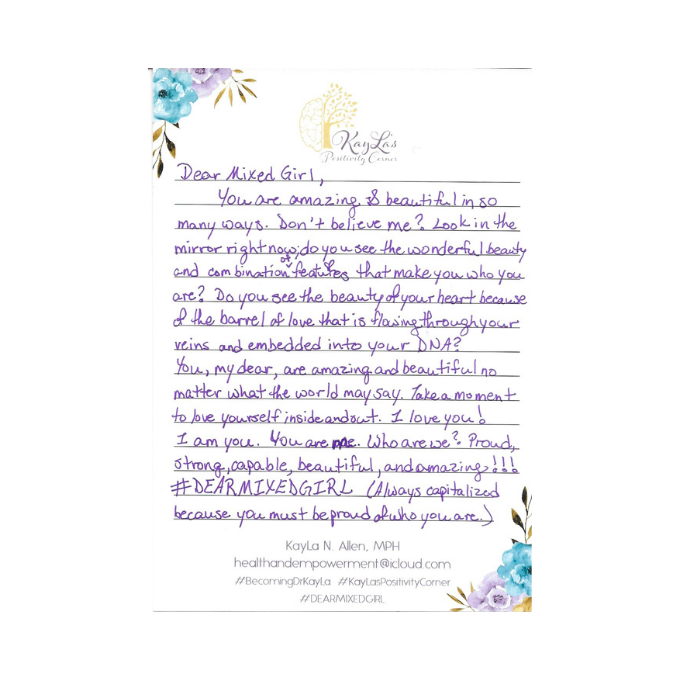 KayLa's
Positivity Corner
Dear Mixed Girl,
You are amazing & beautiful in so
many ways. Don't believe me? Look in the
mirror right now; do you see the wonderful beauty
and combination of features that make you who you
are? Do you see the beauty of your heart because
of the barrel of love that is flowing through your
veins and embedded into your DNA?
You, my dear, are amazing and beautiful no
matter what the world may say. Take a moment
to love yourself inside and out. I love you!
I am you. You are me. Who are we? Proud,
strong, capable, beautiful, and amazing!!!
#DEARMIXEDGIRL (Always capitalized
because you must be proud of who you are.)
KayLa N. Allen, MPH
healthandempowerment@icloud.com
#BecomingDrKayLa #KayLasPositivityCorner
#DEARMIXEDGIRL